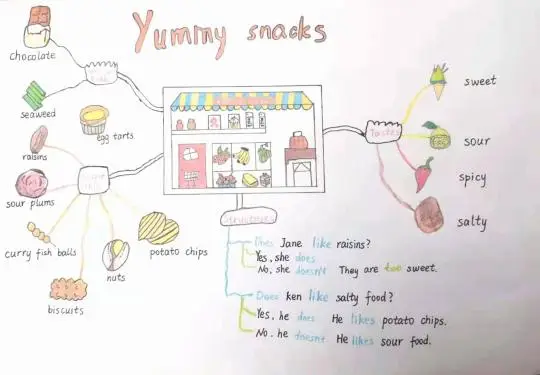 Yummy snacks
chocolate
seaweed
egg tarts
raisins
sour plums
curry fish balls
biscuits
nuts
potato chips
Tastes
sweet
sour
spicy
salty
Does Jane like raisins?
Yes, she does
No, she doesn't They are too sweet.
Does ken like salty food?
Yes, he does He likes potato chips.
No. he doesnt He likes sour food.